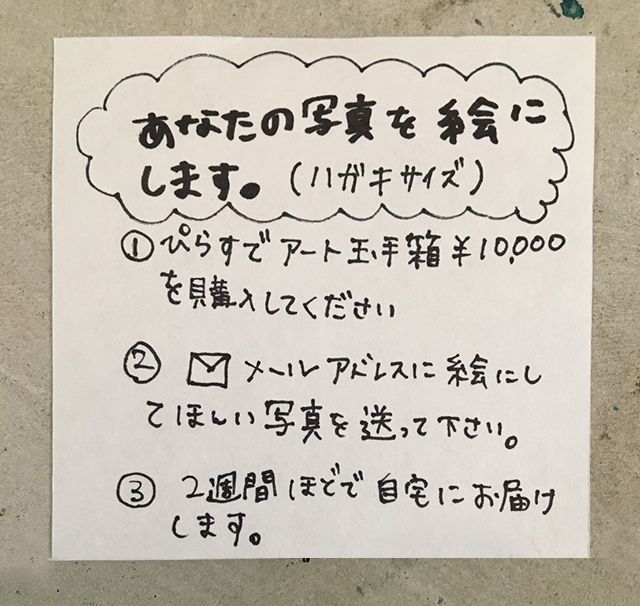 あなたの写真を絵に
します。(ハガキサイズ)
① ぴらすで アート玉手箱 ¥10,000
を購入してください
② メールアドレスに 絵にし
てほしい写真を送って下さい。
③ 2週間ほどで自宅にお届け
します。